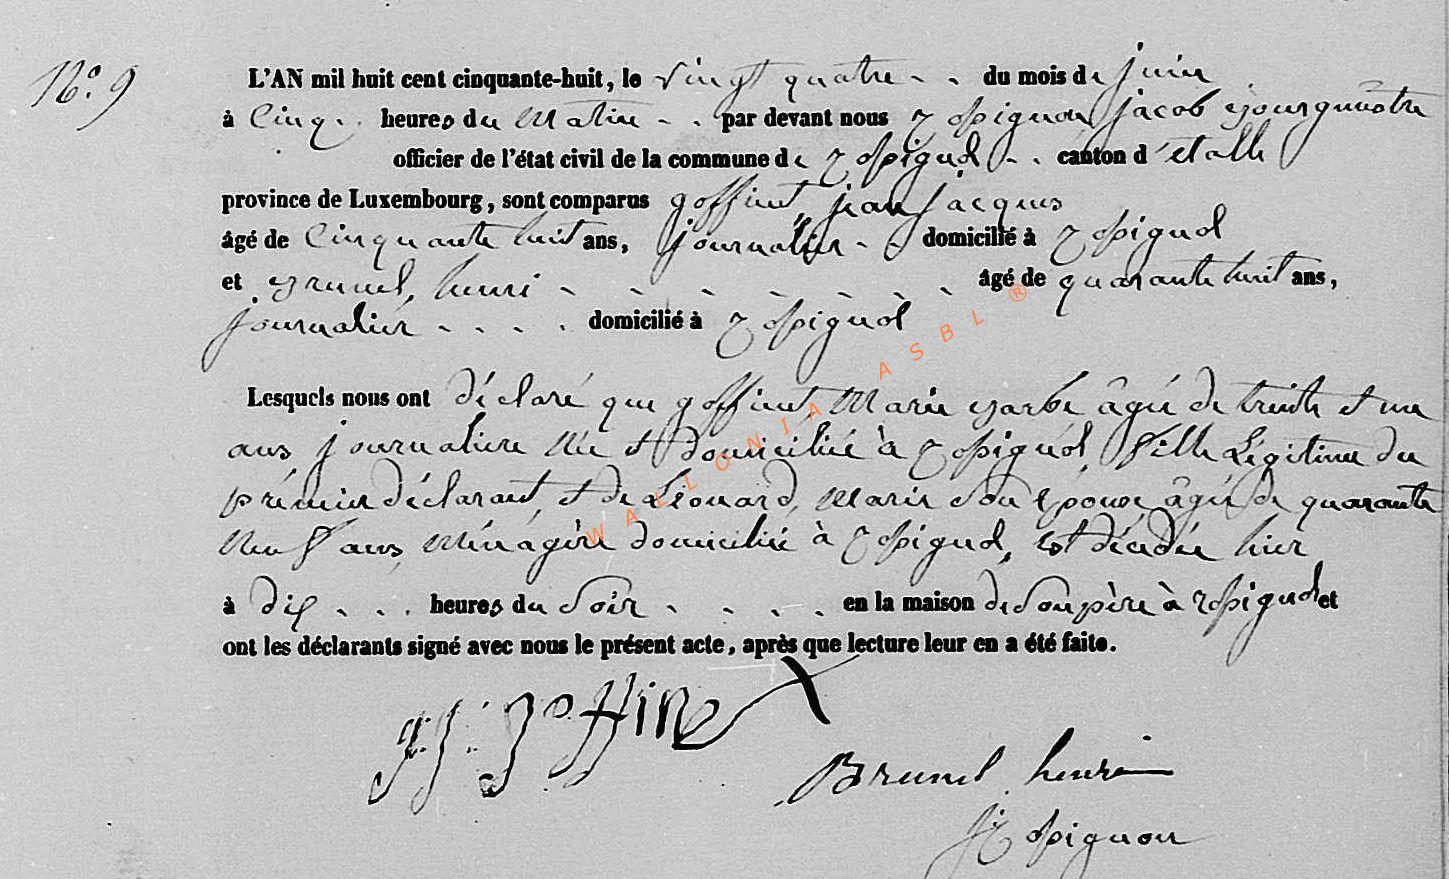 N.° 9
L'AN mil huit cent cinquante-huit, le vingt quatre - - du mois de juin
à cinq - heures du matin - - par devant nous Rossignon jacob Bourgumestre
officier de l'état civil de la commune de Rossignol - - canton d'étalle
province de Luxembourg, sont comparus goffinet, jean jacques
âgé de cinquante huit ans, journalier - - domicilié à Rossignol
et Brunel, henri - - - - - - - âgé de quarante huit ans,
journalier - - - - domicilié à Rossignol
Lesquels nous ont déclaré que goffinet, Marie Barbe âgée de trente et un
ans journalière Née et domiciliée à Rossignol, fille Légitime du
prémier déclarant, et de Léonard, Marie son épouse âgée de quarante
Neuf ans, Ménagère domiciliée à Rossignol, est décédée hier
à dix - - - heures du Soir - - - - en la maison de Son père à Rossignol et
ont les déclarants signé avec nous le présent acte, après que lecture leur en a été faite.
J J Goffinet
Brunel henri
J Rossignon
WALLONIA ASBL ®